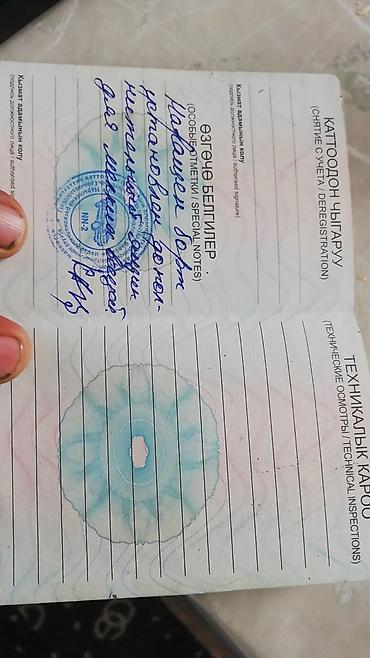 КАТТООДОН ЧЫГАРУУ
(СНЯТИЕ С УЧЕТА / DEREGISTRATION)
Кызмат адамынын колу
(подпись должностного лица / authorised signature)
ӨЗГӨЧӨ БЕЛГИЛЕР
(ОСОБЫЕ ОТМЕТКИ / SPECIAL NOTES)
На вашем борт
установлен допол-
нительный
для
NN-2
Кызмат адамынын колу
(подпись должностного лица / authorised signature)
ТЕХНИКАЛЫК КАРОО
(ТЕХНИЧЕСКИЕ ОСМОТРЫ / TECHNICAL INSPECTIONS)